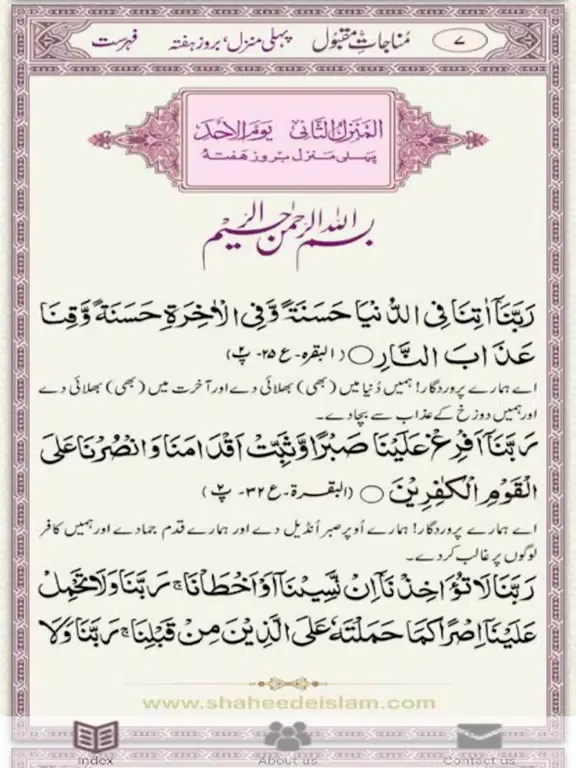 ۷ مُناجاتِ مقبُول پہلی منزل، بروز ہفتہ فہرست
المَنزلُ الثَّانی یَومَ الاَحد
پہلی منزل بروز ہفتہ
بسم الله الرحمن الرحیم
رَبَّنَاۤ اٰتِنَا فِی الدُّنْیَا حَسَنَةً وَّفِی الْاٰخِرَةِ حَسَنَةً وَّقِنَا
عَذَابَ النَّارِ ○ (البقرہ۔ع ۲۵۔ پ۲)
اے ہمارے پروردگار! ہمیں دُنیا میں (بھی) بھلائی دے اور آخرت میں (بھی) بھلائی دے
اور ہمیں دوزخ کے عذاب سے بچا دے۔
رَبَّنَاۤ اَفْرِغْ عَلَیْنَا صَبْرًا وَّثَبِّتْ اَقْدَامَنَا وَانْصُرْنَا عَلَی
الْقَوْمِ الْکٰفِرِیْنَ ○ (البقرة۔ع ۳۲۔ پ۲)
اے ہمارے پروردگار! ہمارے اُوپر صبر اُنڈیل دے اور ہمارے قدم جمادے اور ہمیں کافر
لوگوں پر غالب کر دے۔
رَبَّنَا لَا تُؤَاخِذْنَاۤ اِنْ نَّسِیْنَاۤ اَوْ اَخْطَاْنَا ۚ رَبَّنَا وَلَا تَحْمِلْ
عَلَیْنَاۤ اِصْرًا کَمَا حَمَلْتَهٗ عَلَی الَّذِیْنَ مِنْ قَبْلِنَا ۚ رَبَّنَا وَلَا
www.shaheedeislam.com
Index About us Contact us